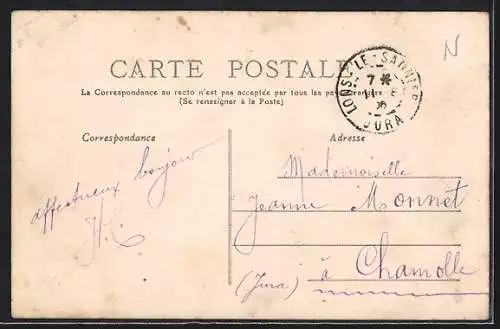 N
CARTE POSTALE
La Correspondance au recto n'est pas acceptée par tous les pays étrangers
(Se renseigner à la Poste)
LONS-LE-SAUNIER
7 *
JURA
Correspondance
Adresse
affectueux bonjour
Mademoiselle
Jeanne Monnet
à Chamolle
(Jura)